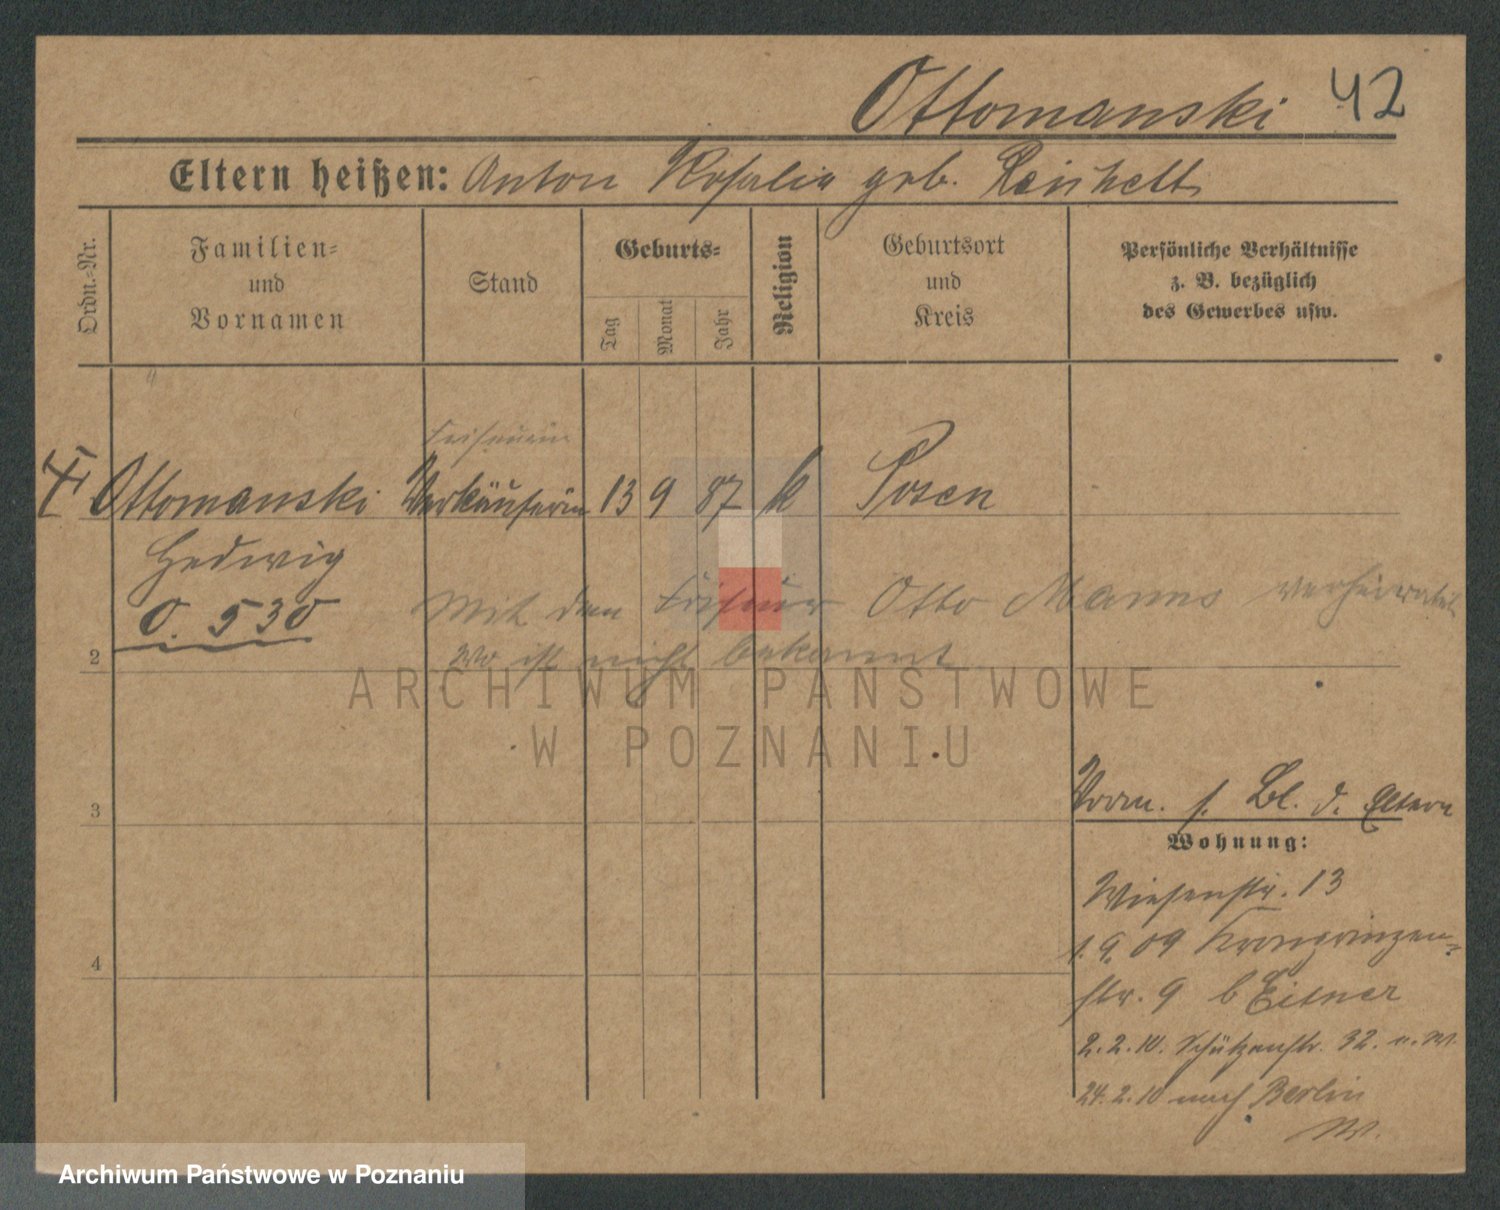 Ottomanski 42
Eltern heißen: Anton Rosalia geb.
Ordn.-Nr.
Familien-
und
Vornamen
Stand
Geburts-
Tag
Monat
Jahr
Religion
Geburtsort
und
Kreis
Persönliche Verhältnisse
z. B. bezüglich
des Gewerbes usw.
Friseurin
Ottomanski Verkäuferin 13 9 87 k Posen
Hedwig
O. 530
Mit dem Friseur Otto Manns verheiratet
2 Wo ist nicht bekannt
ARCHIWUM PAŃSTWOWE
W POZNANIU
3 Vorm. s. Bl. d. Eltern
Wohnung:
Wiesenstr. 13
1. 9. 09 Kronprinzen-
4 str. 9 b Eitner
2. 2. 10. Schützenstr. 32.
24. 2. 10 nach Berlin
Archiwum Państwowe w Poznaniu